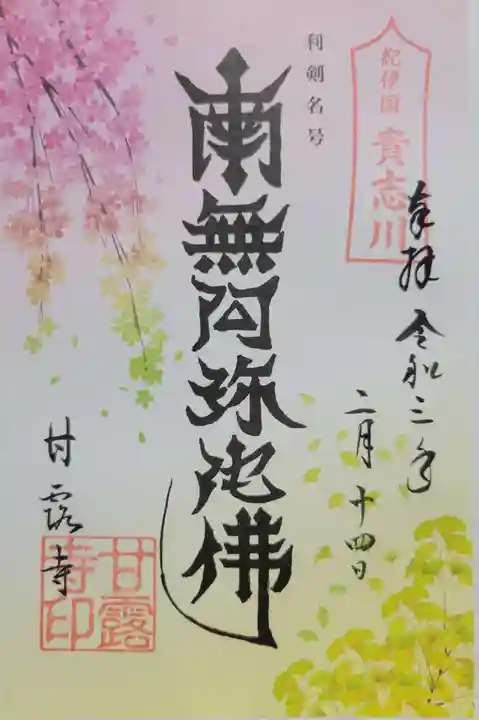 紀伊国
貴志川
奉拝 令和三年
二月十四日
利剣名号
南無阿弥陀佛
甘露寺
甘露
寺印